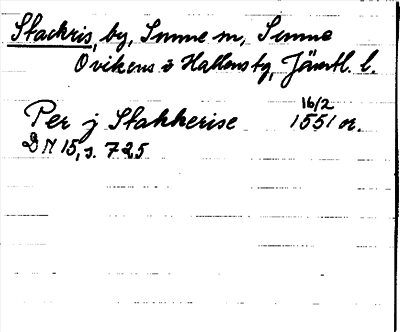 Stackris, by, Sunne sn, Sunne
Ovikens o Hallens tg, Jämtl. l.
Per j Stakkerise 16/2 1551 or.
DN 15, s. 725